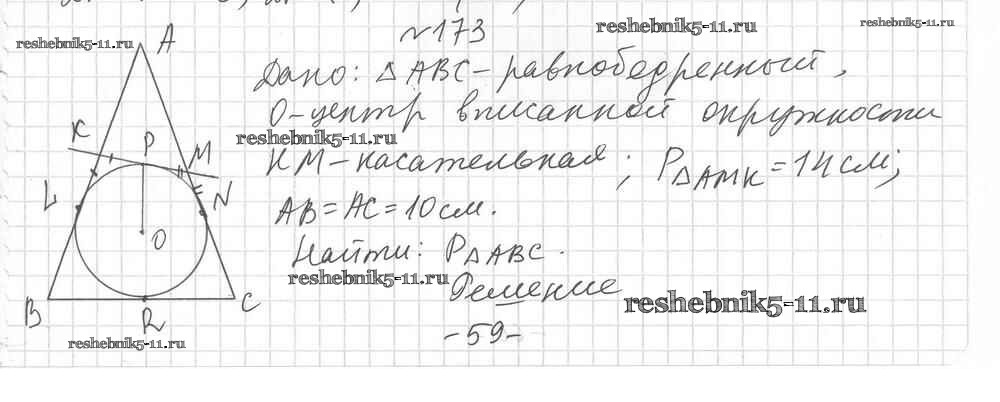 №173
reshebnik5-11.ru
reshebnik5-11.ru
reshebnik5-11.ru
A
Дано: △ABC - равнобедренный,
O-центр вписанной окружности
reshebnik5-11.ru
K
P
M
KM-касательная; P△AMK = 14см;
L
N
AB = AC = 10см.
O
Найти: P△ABC.
reshebnik5-11.ru
Решение
reshebnik5-11.ru
B
R
C
-59-
reshebnik5-11.ru